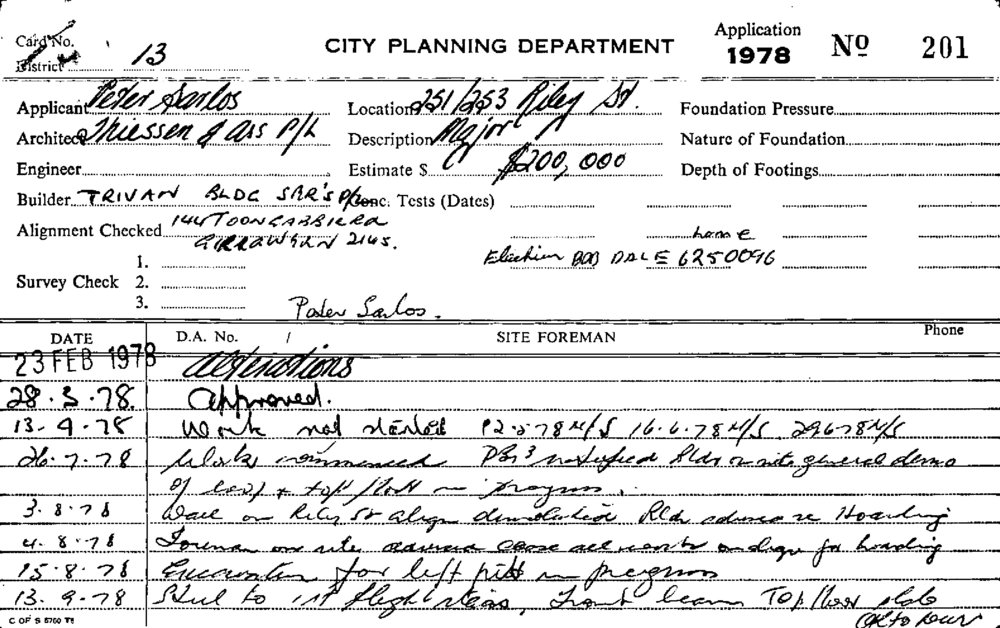 Card No. 13 CITY PLANNING DEPARTMENT Application 1978 Nº 201
District
Applicant Peter Sarlos Location 251/253 Riley St. Foundation Pressure
Architect Thiessen & Ass P/L Description Major Nature of Foundation
Engineer Estimate $ $200,000 Depth of Footings
Builder TRIVAN BLDG SER'S P/L Conc. Tests (Dates)
Alignment Checked 144 TOONGABBIE RD
GIRRAWEEN 2145. home
1. BOB DALE 6250096
Survey Check 2.
3. Peter Sarlos.
DATE D.A. No. / SITE FOREMAN Phone
23 FEB 1978 Alterations
28.3.78. Approved.
13.4.78 Work not started 12.5.78 N/S 16.6.78 N/S 29.6.78 N/S
26.7.78 Works commenced notified Bldr on site general demo
of roof & top floor in progress.
3.8.78 Wall on Riley St align demolished Bldr advise re Hoarding
4.8.78 Foreman on site advised cease all work on align for hoarding
15.8.78 Excavation for lift pit in progress
13.9.78 Steel to 1st flight stairs, front beam Top floor slab
OK to pour
C OF S 5760